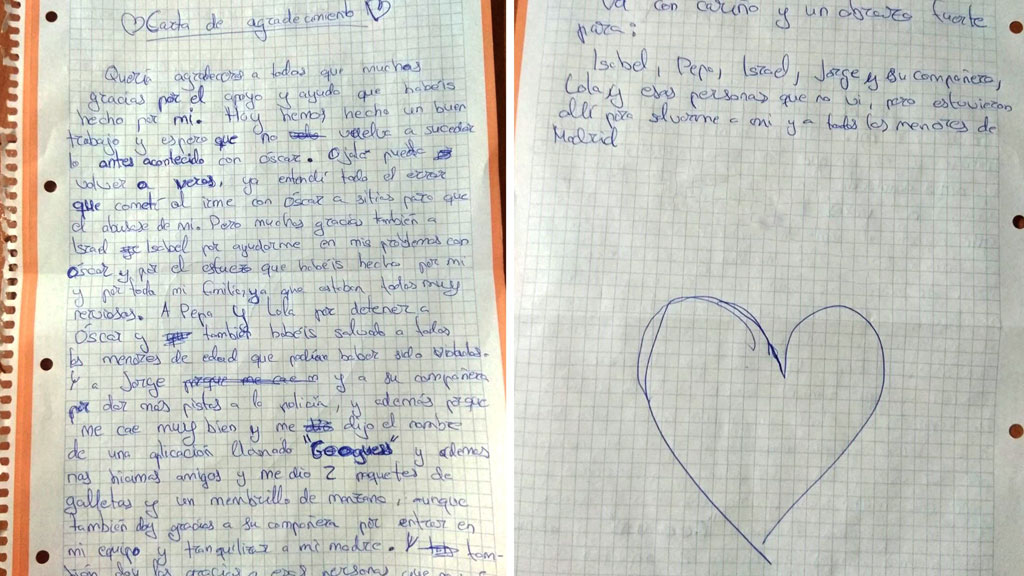 Carta de agradecimiento
Querí agradeceros a todos que muchas
gracias por el apoyo y ayuda que habéis
hecho por mi. Hoy hemos hecho un buen
trabajo y espero que no vuelva a suceder
lo antes acontecido con óscar. Ojalá pueda
volver a veros, ya entendí todo el error
que cometí al irme con Óscar a sitios para que
el abusase de mi. Pero muchas gracias también a
Israel Isabel por ayudarme en mis problemas con
óscar y por el esfuezo que habéis hecho por mi
y por toda mi familia, ya que estaban todos muy
nerviosos. A Pepa y Lola por detener a
Óscar y también habéis salvado a todos
los menores de edad que podrían haber sido violados.
Y a Jorge porque me cae y a su compañera
por dar más pistas a la policía, y además porque
me cae muy bien y me dijo el nombre
de una aplicación llamado "Geoguess" y además
nos hicimos amigos y me dio 2 paquetes de
galletas y un membrillo de manzana, aunque
también doy gracias a su compañera por entrar en
mi equipo y tranquilizar a mi madre. Y tam-
bién doy las gracias a esas personas que
Va con cariño y un abrazo fuerte
para:
Isabel, Pepa, Israel, Jorge y su compañera,
Lola y esas personas que no vi, pero estuvieron
allí para salvarme a mi y a todos los menores de
Madrid